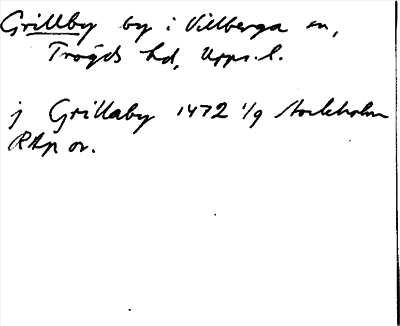 Grillby by i Villberga sn,
Trögds hd, Upps. l.
j Grillaby 1472 1/9 Stockholm
RAp or.